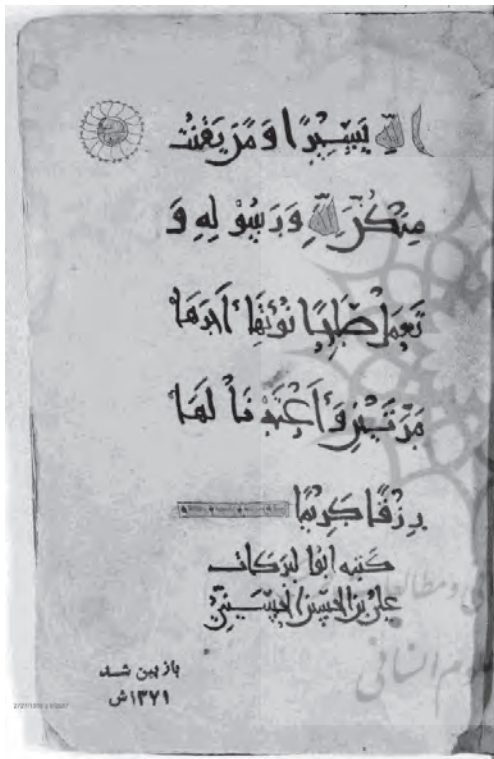 الله يسيرا و من يقنت
منكن لله و رسوله و
تعمل صلحا نؤتها أجرها
مرتين و أعتدنا لها
رزقا كريما
كتبه ابوا لبركات
علي بن الحسين الحسيني
نی و مطالعا
لوم انسانی
بازبین شد
۱۳۷۱ش